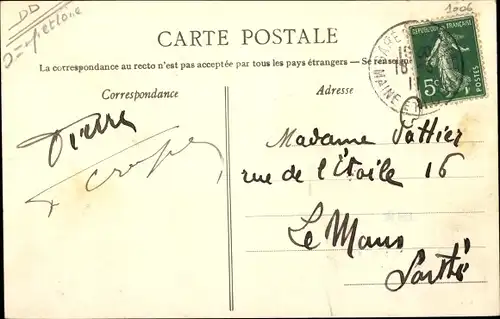 DD
1006
CARTE POSTALE
La correspondance au recto n'est pas acceptée par tous les pays étrangers — Se
RÉPUBLIQUE FRANÇAISE
5c
POSTES
MAINE ET
Correspondance
Adresse
Pierre
Madame Pottier
rue de l'Étoile 16
Le Mans
Sarthe